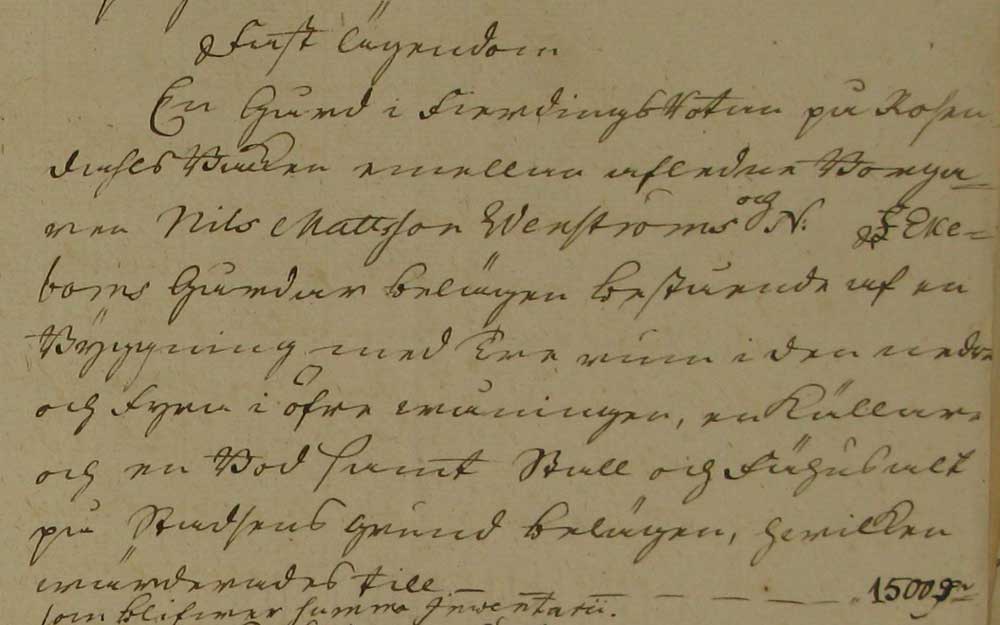 Fast Egendom
En Gård i Fierdings Rotan på Rosen
dahls Backen emellan afledne Borga=
ren Nils Mattsson Wenströms och N: Eke=
boms Gårdar belägen bestående af en
Byggning med Tre rum i den nedre
och Fyra i öfre wåningen, en Källare
och en Bod samt Stall och Fähus alt
på Stadsens grund belägen, hwilken
wärderades till — — — — 1500
som blifwer summa Inventarii.